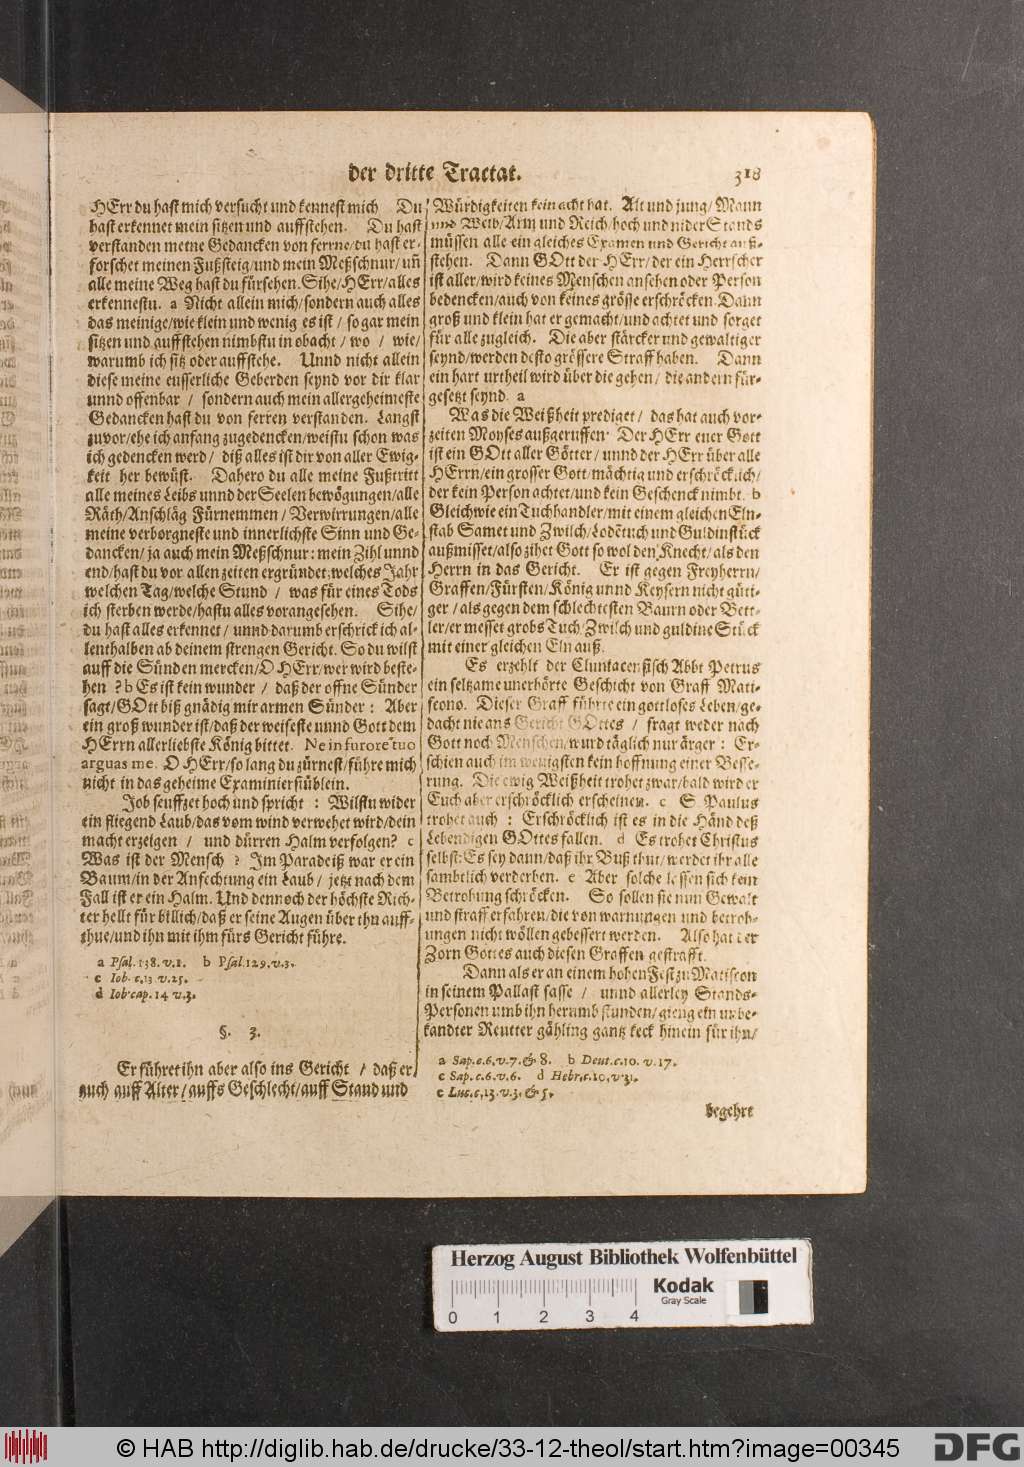 der dritte Tractat.
318
HErr du hast mich versucht und kennest mich Du
hast erkennet mein sitzen und auffstehen. Du hast
verstanden meine Gedancken von ferrne/du hast er-
forschet meinen Fußsteig/und mein Meßschnur/uñ
alle meine Weg hast du fürsehen. Sihe/HErr/alles
erkennestu. a Nicht allein mich/sondern auch alles
das meinige/wie klein und wenig es ist/ so gar mein
sitzen und auffstehen nimbstu in obacht/ wo / wie/
warumb ich sitz oder auffstehe. Unnd nicht allein
diese meine eusserliche Geberden seynd vor dir klar
unnd offenbar / sondern auch mein allergeheimeste
Gedancken hast du von ferren verstanden. Langst
zuvor/ehe ich anfang zugedencken/weistu schon was
ich gedencken werd/ diß alles ist dir von aller Ewig-
keit her bewüst. Dahero du alle meine Fußtritt
alle meines Leibs unnd der Seelen bewögungen/alle
Räth/Anschläg Fürnemmen/ Verwirrungen/alle
meine verborgneste und innerlichste Sinn und Ge-
dancken/ ja auch mein Meßschnur: mein Zihl unnd
end/hast du vor allen zeiten ergründet: welches Jahr
welchen Tag/welche Stund / was für eines Tods
ich sterben werde/hastu alles vorangesehen. Sihe/
du hast alles erkennet/ unnd darumb erschrick ich al-
lenthalben ab deinem strengen Gericht. So du wilst
auff die Sünden mercken/O HErr/wer wird beste-
hen ? b Es ist kein wunder / daß der offne Sünder
sagt/GOtt biß gnädig mir armen Sünder: Aber
ein groß wunder ist/daß der weiseste unnd Gott dem
HErrn allerliebste König bittet. Ne in furore tuo
arguas me. O HErr/so lang du zürnest/führe mich
nicht in das geheime Examinierstüblein.
Job seuffzet hoch und spricht : Wilstu wider
ein fliegend Laub/das vom wind verwehet wird/dein
macht erzeigen / und dürren Halm verfolgen? c
Was ist der Mensch ? Im Paradeiß war er ein
Baum/in der Anfechtung ein Laub/ jetzt nach dem
Fall ist er ein Halm. Und dennoch der höchste Rich-
ter hellt für billich/daß er seine Augen über ihn auff-
thue/und ihn mit ihm fürs Gericht führe.
a Psal. 138. v. 1. b Psal. 129. v. 3.
c Iob. c. 13. v. 25.
d Iob cap. 14 v. 3.
§. 3.
Er führet ihn aber also ins Gericht / daß er
auch auff Alter/auffs Geschlecht/auff Stand und
Würdigkeiten kein acht hat. Alt und jung/ Mann
und Weib/Arm und Reich/hoch und nider Stands
müssen alle ein gleiches Examen und Gericht auß-
stehen. Dann GOtt der HErr/der ein Herrscher
ist aller/wird keines Menschen ansehen oder Person
bedencken/auch von keines grösse erschröcken. Dann
groß und klein hat er gemacht/und achtet und sorget
für alle zugleich. Die aber stärcker und gewaltiger
seynd/werden desto grössere Straff haben. Dann
ein hart urtheil wird über die gehen/ die andern für-
gesetzt seynd. a
Was die Weißheit prediget/ das hat auch vor-
zeiten Moyses außgeruffen: Der HErr euer Gott
ist ein GOtt aller Götter/ unnd der HErr über alle
HErrn/ein grosser Gott/mächtig und erschröcklich/
der kein Person achtet/und kein Geschenck nimbt. b
Gleichwie ein Tuchhandler/mit einem gleichen Eln-
stab Samet und Zwilch/Lodētuch und Guldinstück
außmisset/also zihet Gott so wol den Knecht/als den
Herrn in das Gericht. Er ist gegen Freyherrn/
Graffen/Fürsten/König unnd Keysern nicht güti-
ger/als gegen dem schlechtesten Baurn oder Bett-
ler/er messet grobs Tuch/Zwilch und guldine Stück
mit einer gleichen Eln auß.
Es erzehlt der Cluniacensisch Abbt Petrus
ein seltzame unerhörte Geschicht von Graff Mati-
scono. Dieser Graff führte ein gottloses Leben/ge-
dacht nie ans Gericht GOttes / fragt weder nach
Gott noch Menschen/wurd täglich nur ärger: Er-
schien auch im wenigsten kein hoffnung einer Besse-
rung. Die ewig Weißheit trohet zwar/bald wird er
Euch aber erschröcklich erscheinen. c S. Paulus
trohet auch : Erschröcklich ist es in die Händ deß
Lebendigen GOttes fallen. d Es trohet Christus
selbst: Es sey dann/daß ihr Buß thut/werdet ihr alle
sambtlich verderben. e Aber solche lassen sich kein
Betrohung schröcken. So sollen sie nun Gewalt
und straff erfahren/die von warnungen und betroh-
ungen nicht wöllen gebessert werden. Also hat der
Zorn Gottes auch diesen Graffen gestrafft.
Dann als er an einem hohen Fest zu Matiscon
in seinem Pallast sasse / unnd allerley Stands-
Personen umb ihn herumb stunden/gieng ein unbe-
kandter Reutter gähling gantz keck hinein für ihn/
a Sap. c. 6. v. 7. & 8. b Deut. c. 10. v. 17.
c Sap. c. 6. v. 6. d Hebr. c. 10. v. 31.
e Luc. c. 13. v. 3. & 5.
begehrt
Herzog August Bibliothek Wolfenbüttel
Kodak
Gray Scale
0 1 2 3 4
© HAB http://diglib.hab.de/drucke/33-12-theol/start.htm?image=00345
DFG